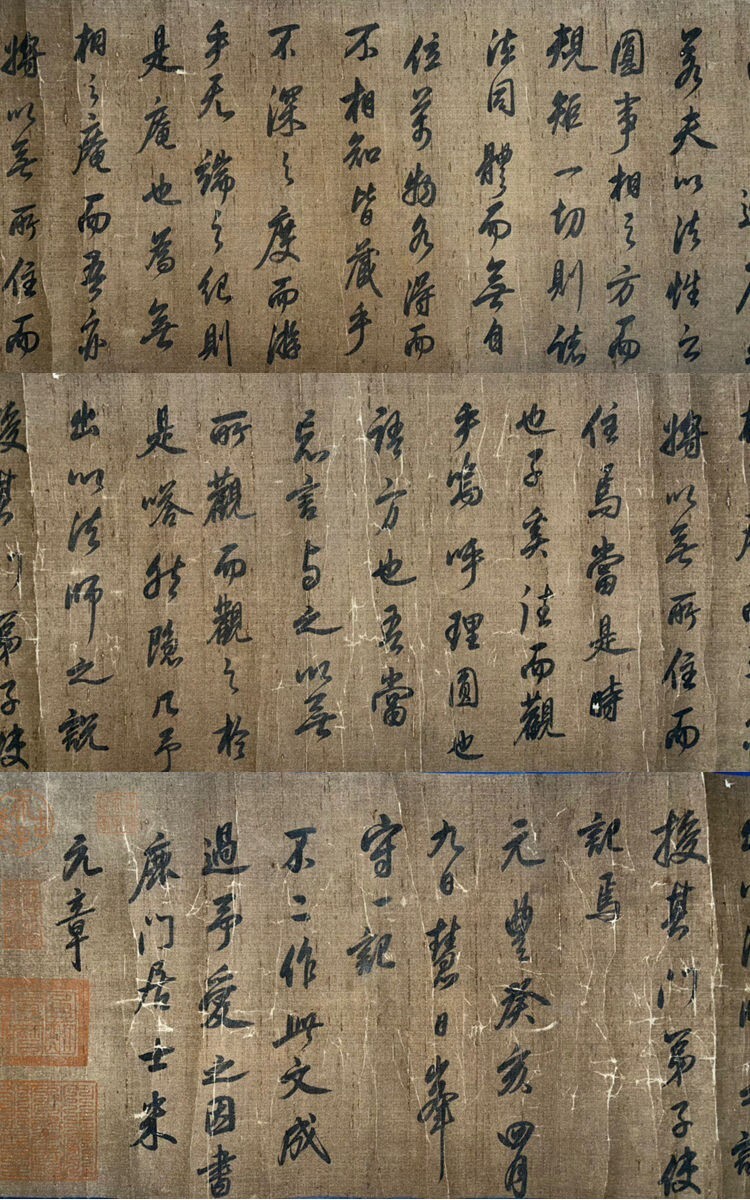 若夫以法性之
圓事相之方而
規矩一切則諸
法同體而無自
位萬物各得而
不相知皆藏乎
不深之度而游
乎无端之紀則
是庵也為無
相之庵而吾亦
將以無所住而
將以無所住而
住焉當是時
也子奚往而觀
乎嗚呼理圓也
語方也吾當
忘言与之以無
所觀而觀之於
是嗒然隱几予
出以法師之說
授其門弟子使
授其門弟子使
記焉
元豐癸亥四月
九日慧日峯
守一記
不二作此文成
過予愛之因書
鹿門居士米
元章